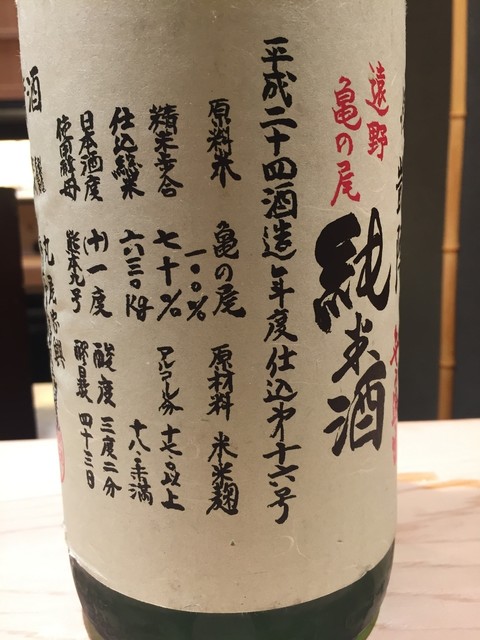 遠野
亀の尾
純米酒
平成二十四酒造年度仕込第十六号
原料米 亀の尾
一〇〇%
原材料 米米麹
精米歩合 七十%
アルコール分 十七.〇以上
十八.〇未満
仕込総米 六三〇kg
日本酒度 (+)十一度
酸度 三度二分
使用酵母 熊本九号
醪日数 四十三日
酒